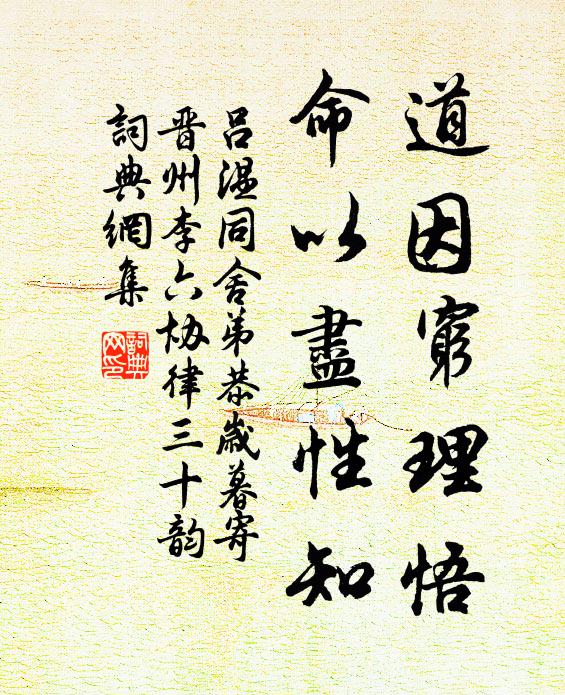 道因窮理悟
命以盡性知
呂溫同舍弟恭歲暮寄
晋州李六协律三十韵
詞典網集
詞典
网印